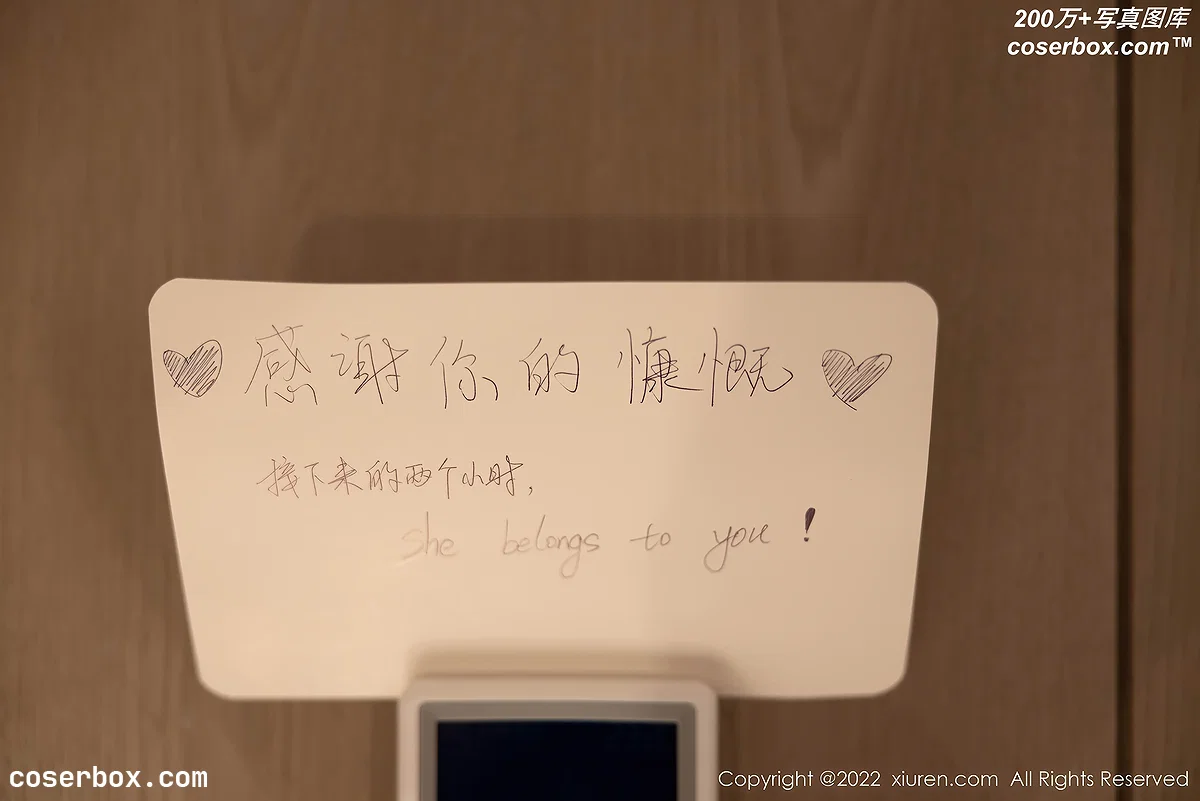 200万+写真图库
coserbox.com™
感谢你的慷慨
接下来的两个小时,
she belongs to you!
coserbox.com
Copyright @2022 xiuren.com All Rights Reserved